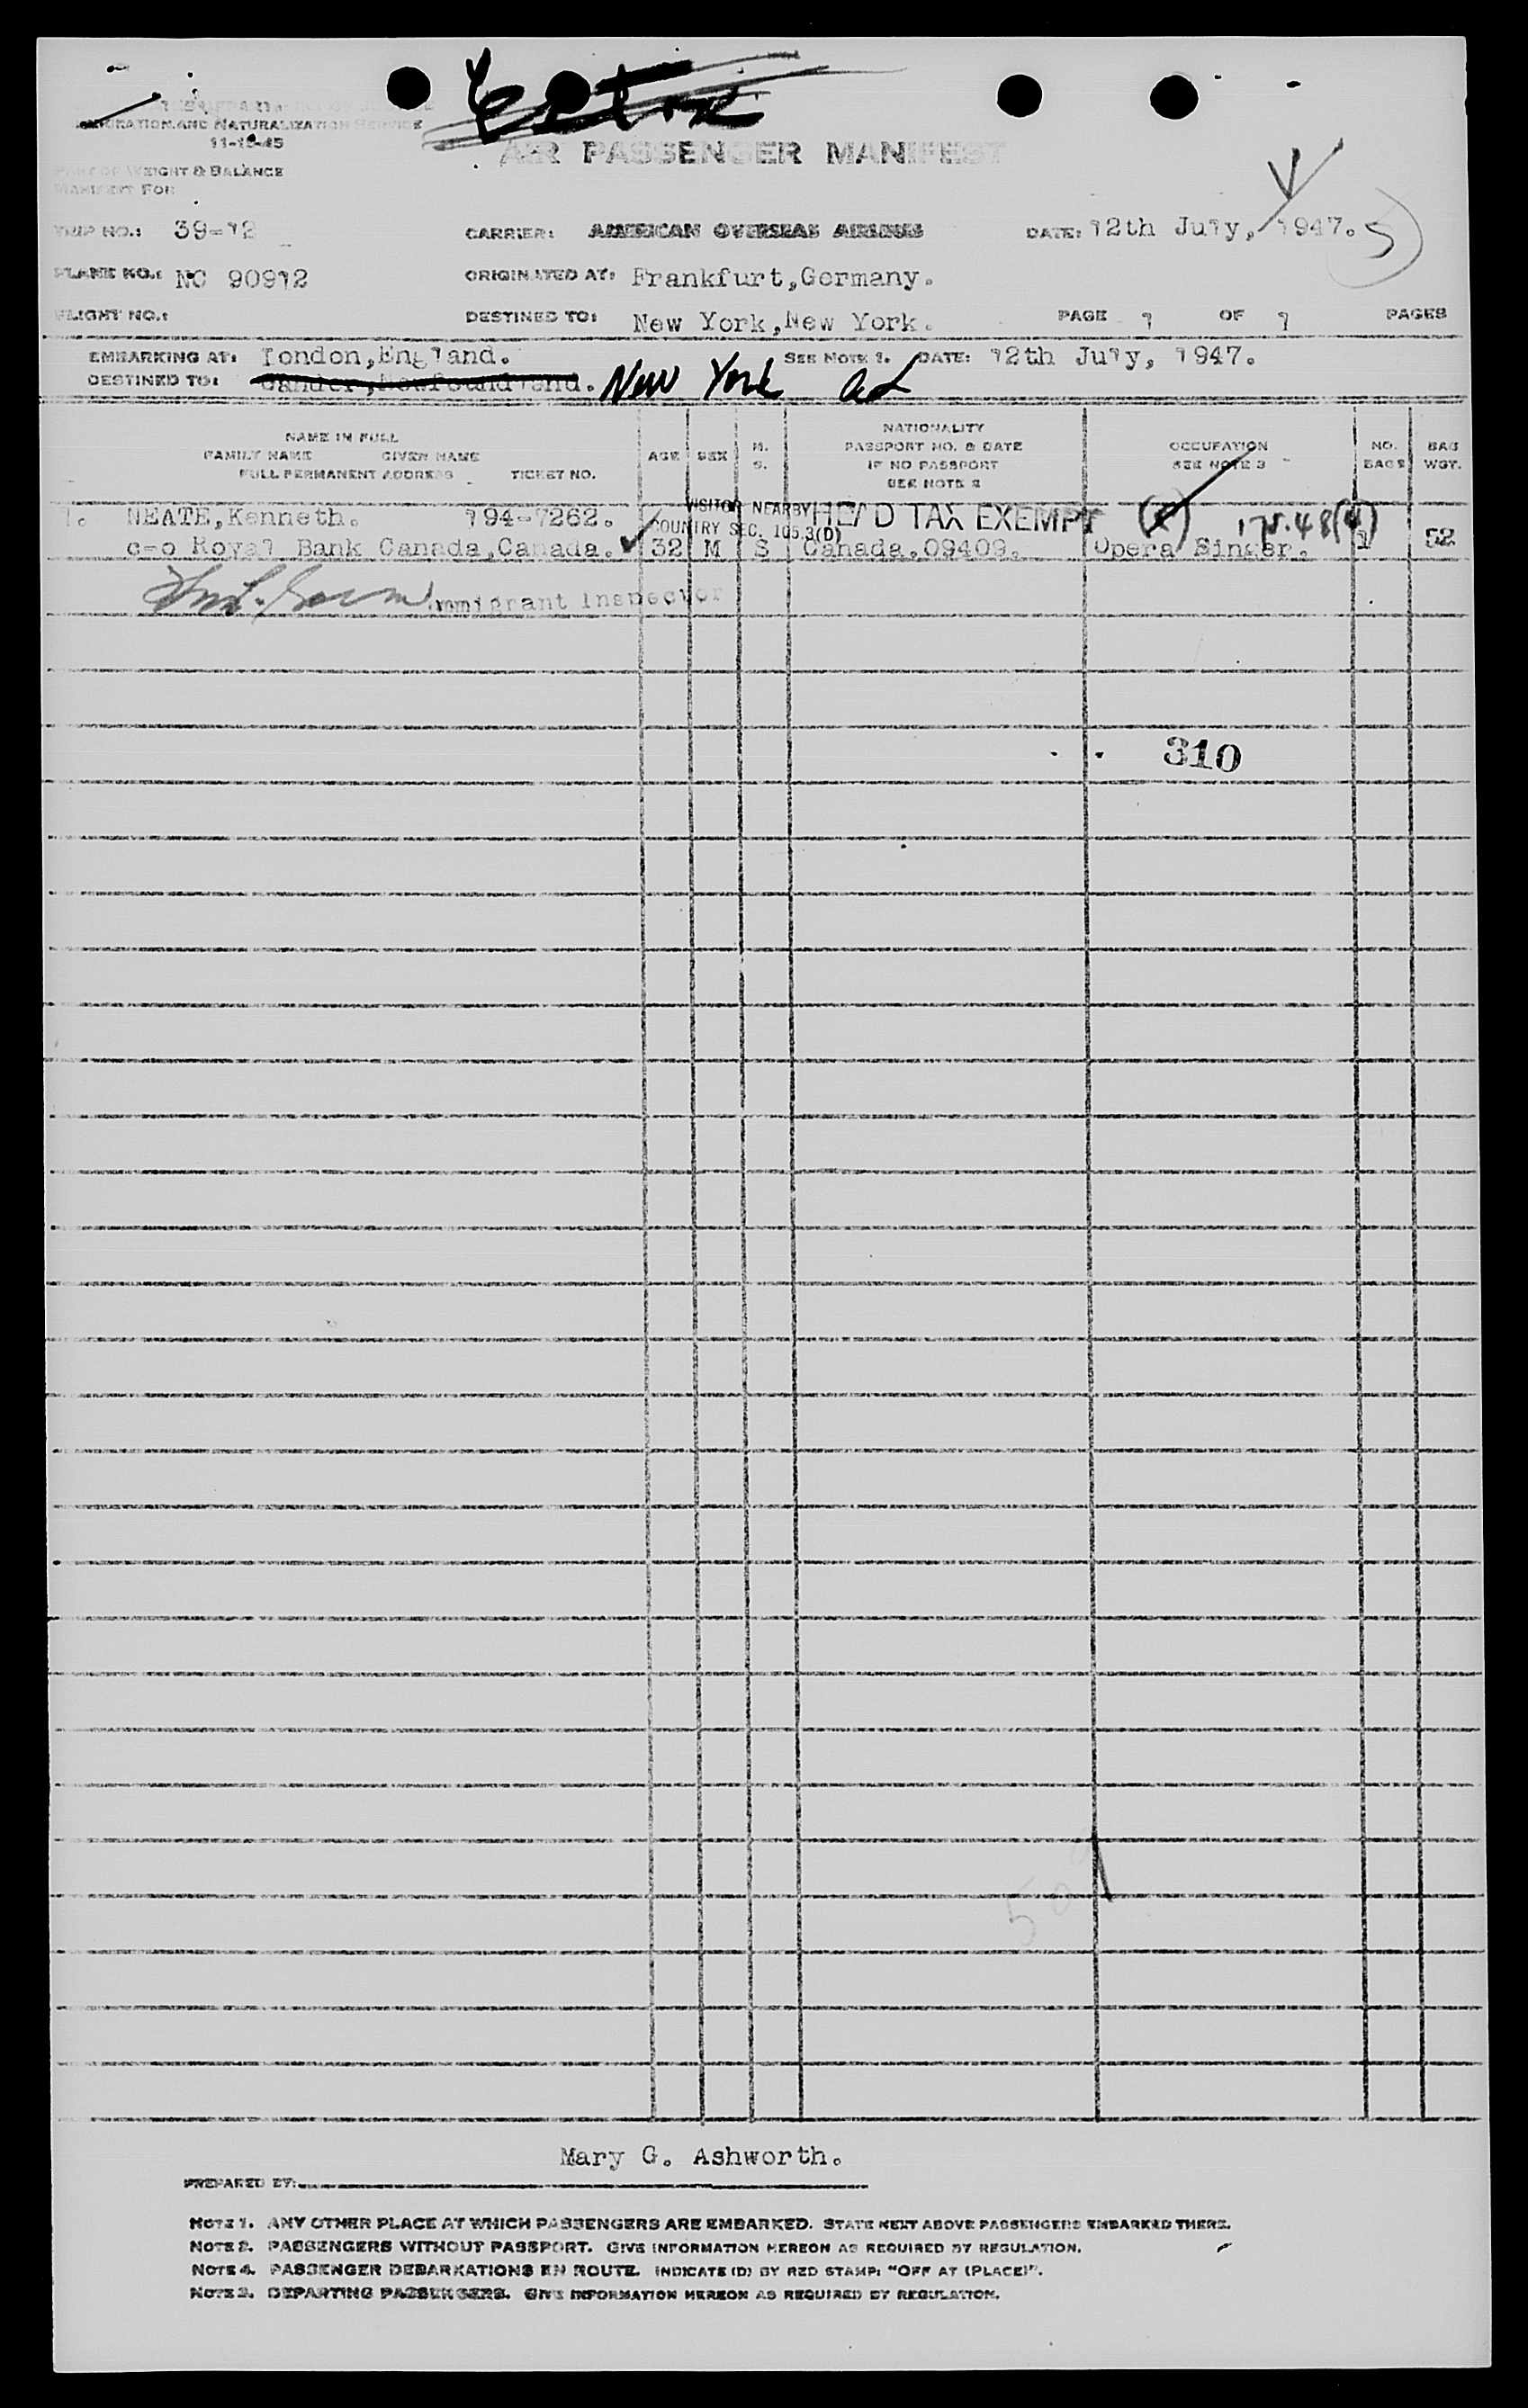 IMMIGRATION AND NATURALIZATION SERVICE
11-15-45
AIR PASSENGER MANIFEST
PART OF WEIGHT & BALANCE
MANIFEST FOR
TRIP NO.: 39-12 CARRIER: AMERICAN OVERSEAS AIRLINES DATE: 12th July, 1947. 5
PLANE NO.: NC 90912 ORIGINATED AT: Frankfurt,Germany.
FLIGHT NO.: DESTINED TO: New York,New York. PAGE 1 OF 1 PAGES
EMBARKING AT: London,England. SEE NOTE 1. DATE: 12th July, 1947.
DESTINED TO: Gander,Newfoundland. New York
NAME IN FULL
FAMILY NAME GIVEN NAME
FULL PERMANENT ADDRESS TICKET NO.
AGE SEX M. S.
NATIONALITY
PASSPORT NO. & DATE
IF NO PASSPORT
SEE NOTE 2
OCCUPATION
SEE NOTE 3
NO. BAGS
BAG WGT.
VISITOR NEARBY HEAD TAX EXEMPT
COUNTRY SEC. 105.3(D)
175.48(4)
1. NEATE,Kenneth. 194-7262.
c-o Royal Bank Canada,Canada. 32 M S Canada.09409. Opera Singer. 1 52
Immigrant Inspector
310
50
Mary G. Ashworth.
PREPARED BY:
NOTE 1. ANY OTHER PLACE AT WHICH PASSENGERS ARE EMBARKED. STATE NEXT ABOVE PASSENGERS EMBARKED THERE.
NOTE 2. PASSENGERS WITHOUT PASSPORT. GIVE INFORMATION HEREON AS REQUIRED BY REGULATION.
NOTE 4. PASSENGER DEBARKATIONS EN ROUTE. INDICATE (D) BY RED STAMP: "OFF AT (PLACE)".
NOTE 3. DEPARTING PASSENGERS. GIVE INFORMATION HEREON AS REQUIRED BY REGULATION.